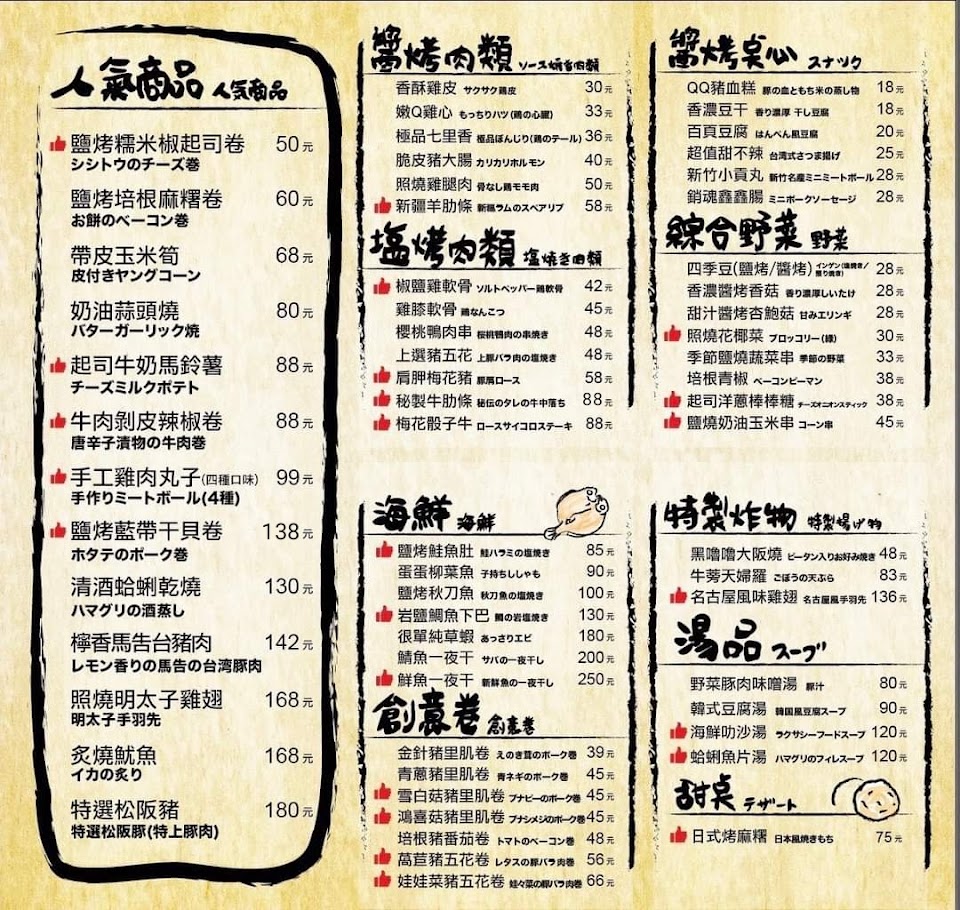 人氣商品 人気商品
鹽烤糯米椒起司卷 50元
シシトウのチーズ巻
鹽烤培根麻糬卷 60元
お餅のベーコン巻
帶皮玉米筍 68元
皮付きヤングコーン
奶油蒜頭燒 80元
バターガーリック焼
起司牛奶馬鈴薯 88元
チーズミルクポテト
牛肉剝皮辣椒卷 88元
唐辛子漬物の牛肉巻
手工雞肉丸子(四種口味) 99元
手作りミートボール(4種)
鹽烤藍帶干貝卷 138元
ホタテのポーク巻
清酒蛤蜊乾燒 130元
ハマグリの酒蒸し
檸香馬告台豬肉 142元
レモン香りの馬告の台湾豚肉
照燒明太子雞翅 168元
明太子手羽先
炙燒魷魚 168元
イカの炙り
特選松阪豬 180元
特選松阪豚(特上豚肉)
醬烤肉類 ソース焼き肉類
香酥雞皮 サクサク鶏皮 30元
嫩Q雞心 もっちりハツ(鶏の心臓) 33元
極品七里香 極品ぼんじり(鶏のテール) 36元
脆皮豬大腸 カリカリホルモン 40元
照燒雞腿肉 骨なし鶏モモ肉 50元
新疆羊肋條 新疆ラムのスペアリブ 58元
塩烤肉類 塩焼き肉類
椒鹽雞軟骨 ソルトペッパー鶏軟骨 42元
雞膝軟骨 鶏なんこつ 45元
櫻桃鴨肉串 桜桃鴨肉の串焼き 48元
上選豬五花 上豚バラ肉の塩焼き 48元
肩胛梅花豬 豚肩ロース 58元
秘製牛肋條 秘伝のタレの牛中落ち 88元
梅花骰子牛 ロースサイコロステーキ 88元
海鮮 海鮮
鹽烤鮭魚肚 鮭ハラミの塩焼き 85元
蛋蛋柳葉魚 子持ちししゃも 90元
鹽烤秋刀魚 秋刀魚の塩焼き 100元
岩鹽鯛魚下巴 鯛の岩塩焼き 130元
很單純草蝦 あっさりエビ 180元
鯖魚一夜干 サバの一夜干し 200元
鮮魚一夜干 新鮮魚の一夜干し 250元
創意卷 創意巻
金針豬里肌卷 えのき茸のポーク巻 39元
青蔥豬里肌卷 青ネギのポーク巻 45元
雪白菇豬里肌卷 ブナピーのポーク巻 45元
鴻喜菇豬里肌卷 ブナシメジのポーク巻 45元
培根豬番茄卷 トマトのベーコン巻 48元
萵苣豬五花卷 レタスの豚バラ肉巻 56元
娃娃菜豬五花卷 娃々菜の豚バラ肉巻 66元
醬烤桌心 スナック
QQ豬血糕 豚の血ともち米の蒸し物 18元
香濃豆干 香り濃厚 干し豆腐 18元
百頁豆腐 はんぺん風豆腐 20元
超值甜不辣 台湾式さつま揚げ 25元
新竹小貢丸 新竹名産ミニミートボール 28元
銷魂鑫鑫腸 ミニポークソーセージ 28元
綜合野菜 野菜
四季豆(鹽烤/醬烤) インゲン(塩焼き/照り焼き) 28元
香濃醬烤香菇 香り濃厚しいたけ 28元
甜汁醬烤杏鮑菇 甘みエリンギ 28元
照燒花椰菜 ブロッコリー(緑) 30元
季節鹽燒蔬菜串 季節の野菜 33元
培根青椒 ベーコンピーマン 38元
起司洋蔥棒棒糖 チーズオニオンスティック 38元
鹽燒奶油玉米串 コーン串 45元
特製炸物 特製揚げ物
黑嚕嚕大阪燒 ピータン入りお好み焼き 48元
牛蒡天婦羅 ごぼうの天ぷら 83元
名古屋風味雞翅 名古屋風手羽先 136元
湯品 スープ
野菜豚肉味噌湯 豚汁 80元
韓式豆腐湯 韓国風豆腐スープ 90元
海鮮叻沙湯 ラクサシーフードスープ 120元
蛤蜊魚片湯 ハマグリのフィレスープ 120元
甜桌 デザート
日式烤麻糬 日本風焼きもち 75元